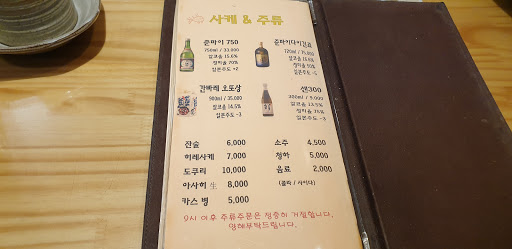 사케 & 주류
준마이 750
750ml / 33,000
알코올 15.6%
정미율 70%
일본주도 +2
준마이다이긴죠
720ml / 75,000
알코올 15.6%
정미율 50%
일본주도 -5
간빠레 오또상
900ml / 35,000
알코올 14.5%
일본주도 -3
센300
300ml / 9,000
알코올 13.5%
일본주도 -3
잔술 6,000
히레사케 7,000
도쿠리 10,000
아사히 生 8,000
카스 병 5,000
소주 4,500
청하 5,000
음료 2,000
(콜라 / 사이다)
9시 이후 주류주문은 정중히 거절합니다.
양해부탁드립니다.